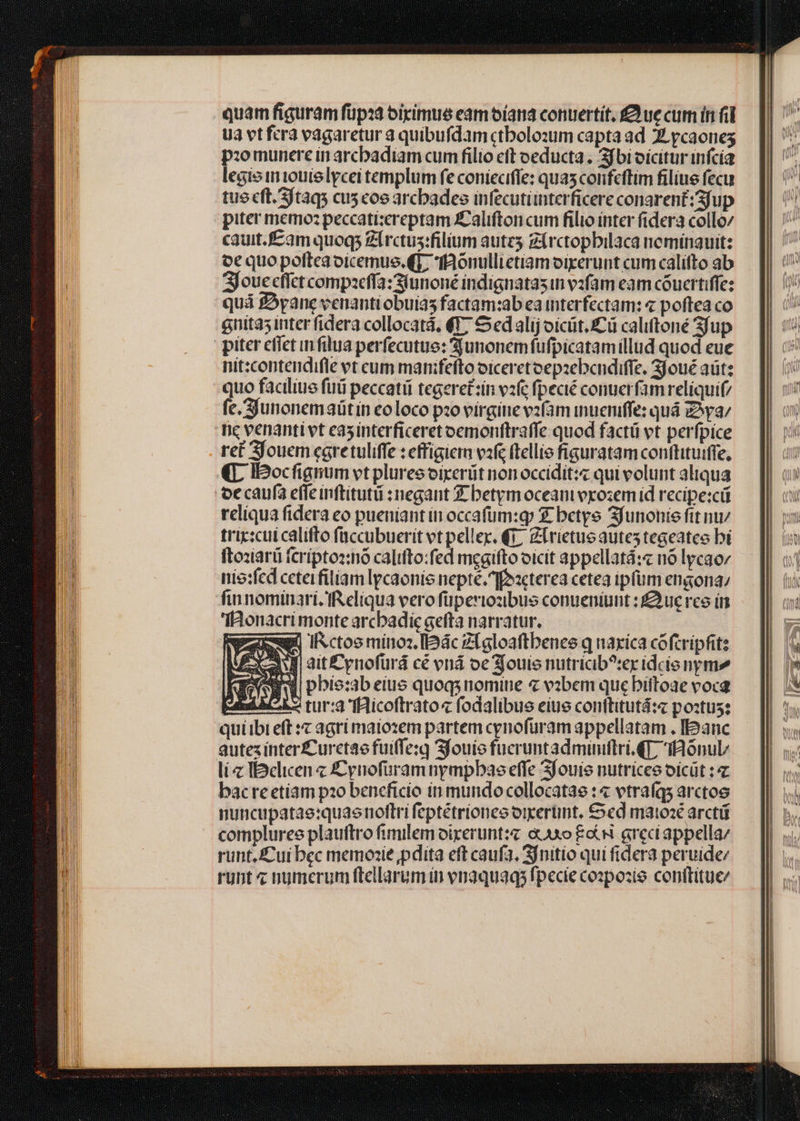 quam figuram supꝛa diximus eam diana conuertit. Que cum in sil
ua vt fera vagaretur a quibusdam ętholoꝛum capta ad Lycaones
pꝛo munere in archadiam cum filio est deducta. Ibi dicitur inscia
legis in iouis lycei templum se coniecisse: quaʒ confestim filius secu
tus est. Itaqʒ cuʒ eos archades insecuti interficere conarent̃: Iup
piter memoꝛ peccati: ereptam Caliston cum filio inter sidera collo/
cauit. Eam quoqʒ Arctuʒ: filium auteʒ Arctophilaca nominauit:
de quo postea dicemus. ¶ Nonulli etiam dixerunt cum calisto ab
Ioue esset compꝛessa: Iunonē indignataʒ in vꝛsam eam cōuertisse:
quā Dyane venanti obuiaʒ factam: ab ea interfectam: ⁊ postea co
gnitaʒ inter sidera collocatā. ¶ Sed alij dicūt. Cū calistonē Iup
piter esset in silua persecutus: Iunonem suspicatam illud quod eue
nit: contendisse vt cum manifesto diceret depꝛehendisse. Iouē aūt:
quo facilius suū peccatū tegeret̃: in vꝛsę speciē conuersam reliquis/
se. Iunonem aūt in eo loco pꝛo virgine vꝛsam inuenisse: quā Dya/
nę venanti vt eaʒ interficeret demonstrasse quod factū vt perspice
ret̃ Iouem egre tulisse: effigiem vꝛsę stellis figuratam constituisse.
¶ Hoc signum vt plures dixerūt non occidit: ⁊ qui volunt aliqua
de causa esse institutū: negant Thetym oceani vxoꝛem id recipe: cū
reliqua sidera eo pueniant in occasum: ꝙ Thetys Iunonis fit nu/
trix: cui calisto succubuerit vt pellex. ¶ Arietus auteʒ tegeates hi
stoꝛiarū scriptoꝛ: nō calisto: sed megisto dicit appellatā: ⁊ nō lycao/
nis: sed cetei filiam lycaonis neptē. Pꝛęterea cetea ipsum engona/
sin nominari. Reliqua vero superioꝛibus conueniunt: Quę res in
Nonacri monte archadię gesta narratur.
Rctos minoꝛ. Hāc Agloasthenes q naxica cōscripsit:
ait Cynosurā cē vnā de Iouis nutricibꝰ: ex ideis nym⸗
phis: ab eius quoqʒ nomine ⁊ vꝛbem quę histoae voca
tur: a Nicostrato ⁊ sodalibus eius constitutā: ⁊ poꝛtuʒ:
qui ibi est: ⁊ agri maioꝛem partem cynosuram appellatam. Hanc
auteʒ inter Curetas fuisse: q Iouis fuerunt administri. ¶ Nōnul/
li ⁊ Helicen ⁊ Cynosuram nymphas esse Iouis nutrices dicūt: ⁊
hac re etiam pꝛo beneficio in mundo collocatas: ⁊ vtrasqʒ arctos
nuncupatas: quas nostri septētriones dixerunt. Sed maioꝛē arctū
complures plaustro similem dixerunt: ⁊ greci appella/
runt. Cui hęc memoꝛię pdita est causa. Initio qui sidera peruide/
runt ⁊ numerum stellarum in vnaquaqʒ specie coꝛpoꝛis constitue/